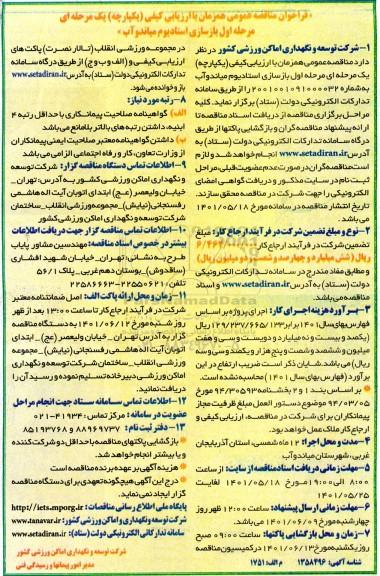 « فراخوان مناقصه عمومی همزمان با ارزیابی کیفی (یکپارچه) یک مرحله ای
مرحله اول بازسازی استادیوم میاندوآب »
۱- شرکت توسعه و نگهداری اماکن ورزشی کشور در نظر
دارد مناقصه عمومی همزمان با ارزیابی کیفی (یکپارچه)
یک مرحله ای مرحله اول بازسازی استادیوم میاندوآب
به شماره ۲۰۰۱۰۰۱۰۹۱۰۰۰۰۳۲ را از طریق سامانه
تدارکات الکترونیکی دولت (ستاد) برگزار نماید. کلیه
مراحل برگزاری مناقصه از دریافت اسناد مناقصه تا
ارائه پیشنهاد مناقصه گران و بازگشایی پاکتها از طریق
درگاه سامانه تدارکات الکترونیکی دولت (ستاد) به
آدرس www.setadiran.ir انجام خواهد شد و لازم
است مناقصه گران در صورت عدم عضویت قبلی، مراحل
ثبت نام در سایت مذکور و دریافت گواهی امضای
الکترونیکی را جهت شرکت در مناقصه محقق سازند.
تاریخ انتشار مناقصه در سامانه مورخ ۱۴۰۱/۰۵/۱۸
می باشد.
۲- نوع و مبلغ تضمین شرکت در فرآیند ارجاع کار: مبلغ
تضمین شرکت در فرآیند ارجاع کار ۶/۴۶۲/۰۰۰/۰۰۰
ریال (شش میلیارد و چهارصد و شصت و دو میلیون ریال)
و مطابق مفاد مندرج در سامانه تدارکات الکترونیکی
دولت (ستاد) به آدرس www.setadiran.ir و اسناد
مناقصه می باشد.
۳- برآورد هزینه اجرای کار: براساس پروژه بر اساس
فهارس بهای سال ۱۴۰۱ برابر ۱۲۹/۲۳۷/۶۶۵/۱۳۳ ریال
(یکصد و بیست و نه میلیارد و دویست و سی و هفت
میلیون و ششصد و شصت و پنج هزار و یکصد و سی و سه
ریال) می باشد. شایان ذکر است ضریب ارتفاع در این
برآورد (فهارس بهای سال ۱۴۰۱) محاسبه شده است.
بر اساس بند ۱ و ۲ بخشنامه ۹۴/۳۰۵۹۳ مورخ
۹۴/۰۳/۰۵ موضوع دستورالعمل مبلغ ظرفیت مجاز
پیمانکاران برای شرکت در مناقصه، ارزیابی کیفی و
ارجاع کار ملاک عمل خواهد بود.
۴- مدت و محل اجرا: ۱۲ ماه شمسی، استان آذربایجان
غربی، شهرستان میاندوآب
۵- مهلت زمانی دریافت اسناد مناقصه از سایت: از ساعت
۸:۰۰ الی ۱۹:۰۰ مورخ ۱۴۰۱/۰۵/۱۸ لغایت
۱۴۰۱/۰۵/۲۵
۶- مهلت زمانی ارسال پیشنهاد: ساعت ۱۲:۰۰ ظهر روز
چهارشنبه مورخ ۱۴۰۱/۰۶/۰۹ می باشد.
۷- زمان و محل بازگشایی پاکتها: ساعت ۰۹:۰۰ صبح
روز یکشنبه مورخ ۱۴۰۱/۰۶/۱۳ در کمیسیون مناقصه
در مجموعه ورزشی انقلاب (تالار نصرت) پاکت های
ارزیابی کیفی و (الف و ب و ج) از طریق درگاه سامانه
تدارکات الکترونیکی دولت (ستاد) به آدرس www.setadiran.ir
باز و خوانده می شود.
۸- رتبه مورد نیاز:
الف) گواهینامه صلاحیت پیمانکاری با حداقل رتبه ۴
ابنیه، داشتن رتبه های بالاتر بلامانع می باشد
ب) داشتن گواهینامه معتبر صلاحیت ایمنی پیمانکاران
از وزارت تعاون، کار و رفاه اجتماعی الزامی می باشد
۹- اطلاعات تماس دستگاه مناقصه گزار: شرکت توسعه
و نگهداری اماکن ورزشی کشور به آدرس: تهران_
خیابان ولیعصر (عج) ابتدای اتوبان آیت اله هاشمی
رفسنجانی (نیایش)_ مجموعه ورزشی انقلاب_ ساختمان
شرکت توسعه و نگهداری اماکن ورزشی کشور
۱۰- اطلاعات تماس مناقصه گزار جهت دریافت اطلاعات
بیشتر در خصوص اسناد مناقصه: مهندسین مشاور پایاب
طرح به نشانی: تهران_ خیابان شهید افشاری
(ساقدوش)_ بوستان دهم غربی_ پلاک ۵۶/۱
تلفن: ۲۲۵۵۰۶۲۱-۲۲۵۸۶۶۶۳
۱۱- زمان و محل ارائه پاکت الف: اصل ضمانتنامه معتبر
شرکت در فرآیند ارجاع کار تا ساعت ۱۳:۰۰ بعد از ظهر
روز شنبه مورخ ۱۴۰۱/۰۶/۱۲ به دستگاه مناقصه
گزار به آدرس تهران_ خیابان ولیعصر (عج)_ ابتدای
اتوبان آیت اله هاشمی رفسنجانی (نیایش)_ مجموعه
ورزشی انقلاب_ ساختمان شرکت توسعه و نگهداری
اماکن ورزشی دبیرخانه تسلیم نموده و رسید آن را
دریافت نمایند.
۱۲- اطلاعات تماس سامانه ستاد جهت انجام مراحل
عضویت در سامانه: مرکز تماس: ۴۱۹۳۴-۰۲۱
۱۳- دفتر ثبت نام: ۸۸۹۶۹۷۳۷ و ۸۵۱۹۳۷۶۸
بازگشایی پاکتهای مناقصه با حداقل دو شرکت کننده
و یا بیشتر انجام خواهد شد.
هزینه آگهی بر عهده برنده مناقصه است
درج این آگهی هیچگونه تعهدی برای دستگاه مناقصه
گزار ایجاد نمی نماید.
پایگاه ملی اطلاع رسانی مناقصات: http://iets.mporg.ir
شرکت توسعه و نگهداری و اماکن ورزشی کشور: www.tanavar.ir
سامانه تدارکاتی الکترونیکی دولت (ستاد): www.setadiran.ir
شرکت توسعه و نگهداری اماکن ورزشی کشور
مدیر امور پیمانها و رسیدگی فنی
شناسه آگهی: ۱۳۵۸۴۹۶ م الف: ۱۷۵۱